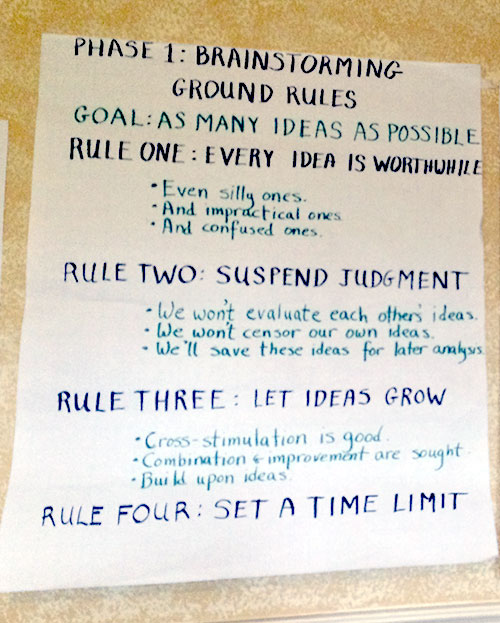 PHASE 1: BRAINSTORMING
GROUND RULES
GOAL: AS MANY IDEAS AS POSSIBLE
RULE ONE: EVERY IDEA IS WORTHWHILE
• Even silly ones.
• And impractical ones
• And confused ones.
RULE TWO: SUSPEND JUDGMENT
• We won't evaluate each others' ideas.
• We won't censor our own ideas.
• We'll save these ideas for later analysis
RULE THREE: LET IDEAS GROW
• Cross-stimulation is good.
• Combination & improvement are sought.
• Build upon ideas.
RULE FOUR: SET A TIME LIMIT